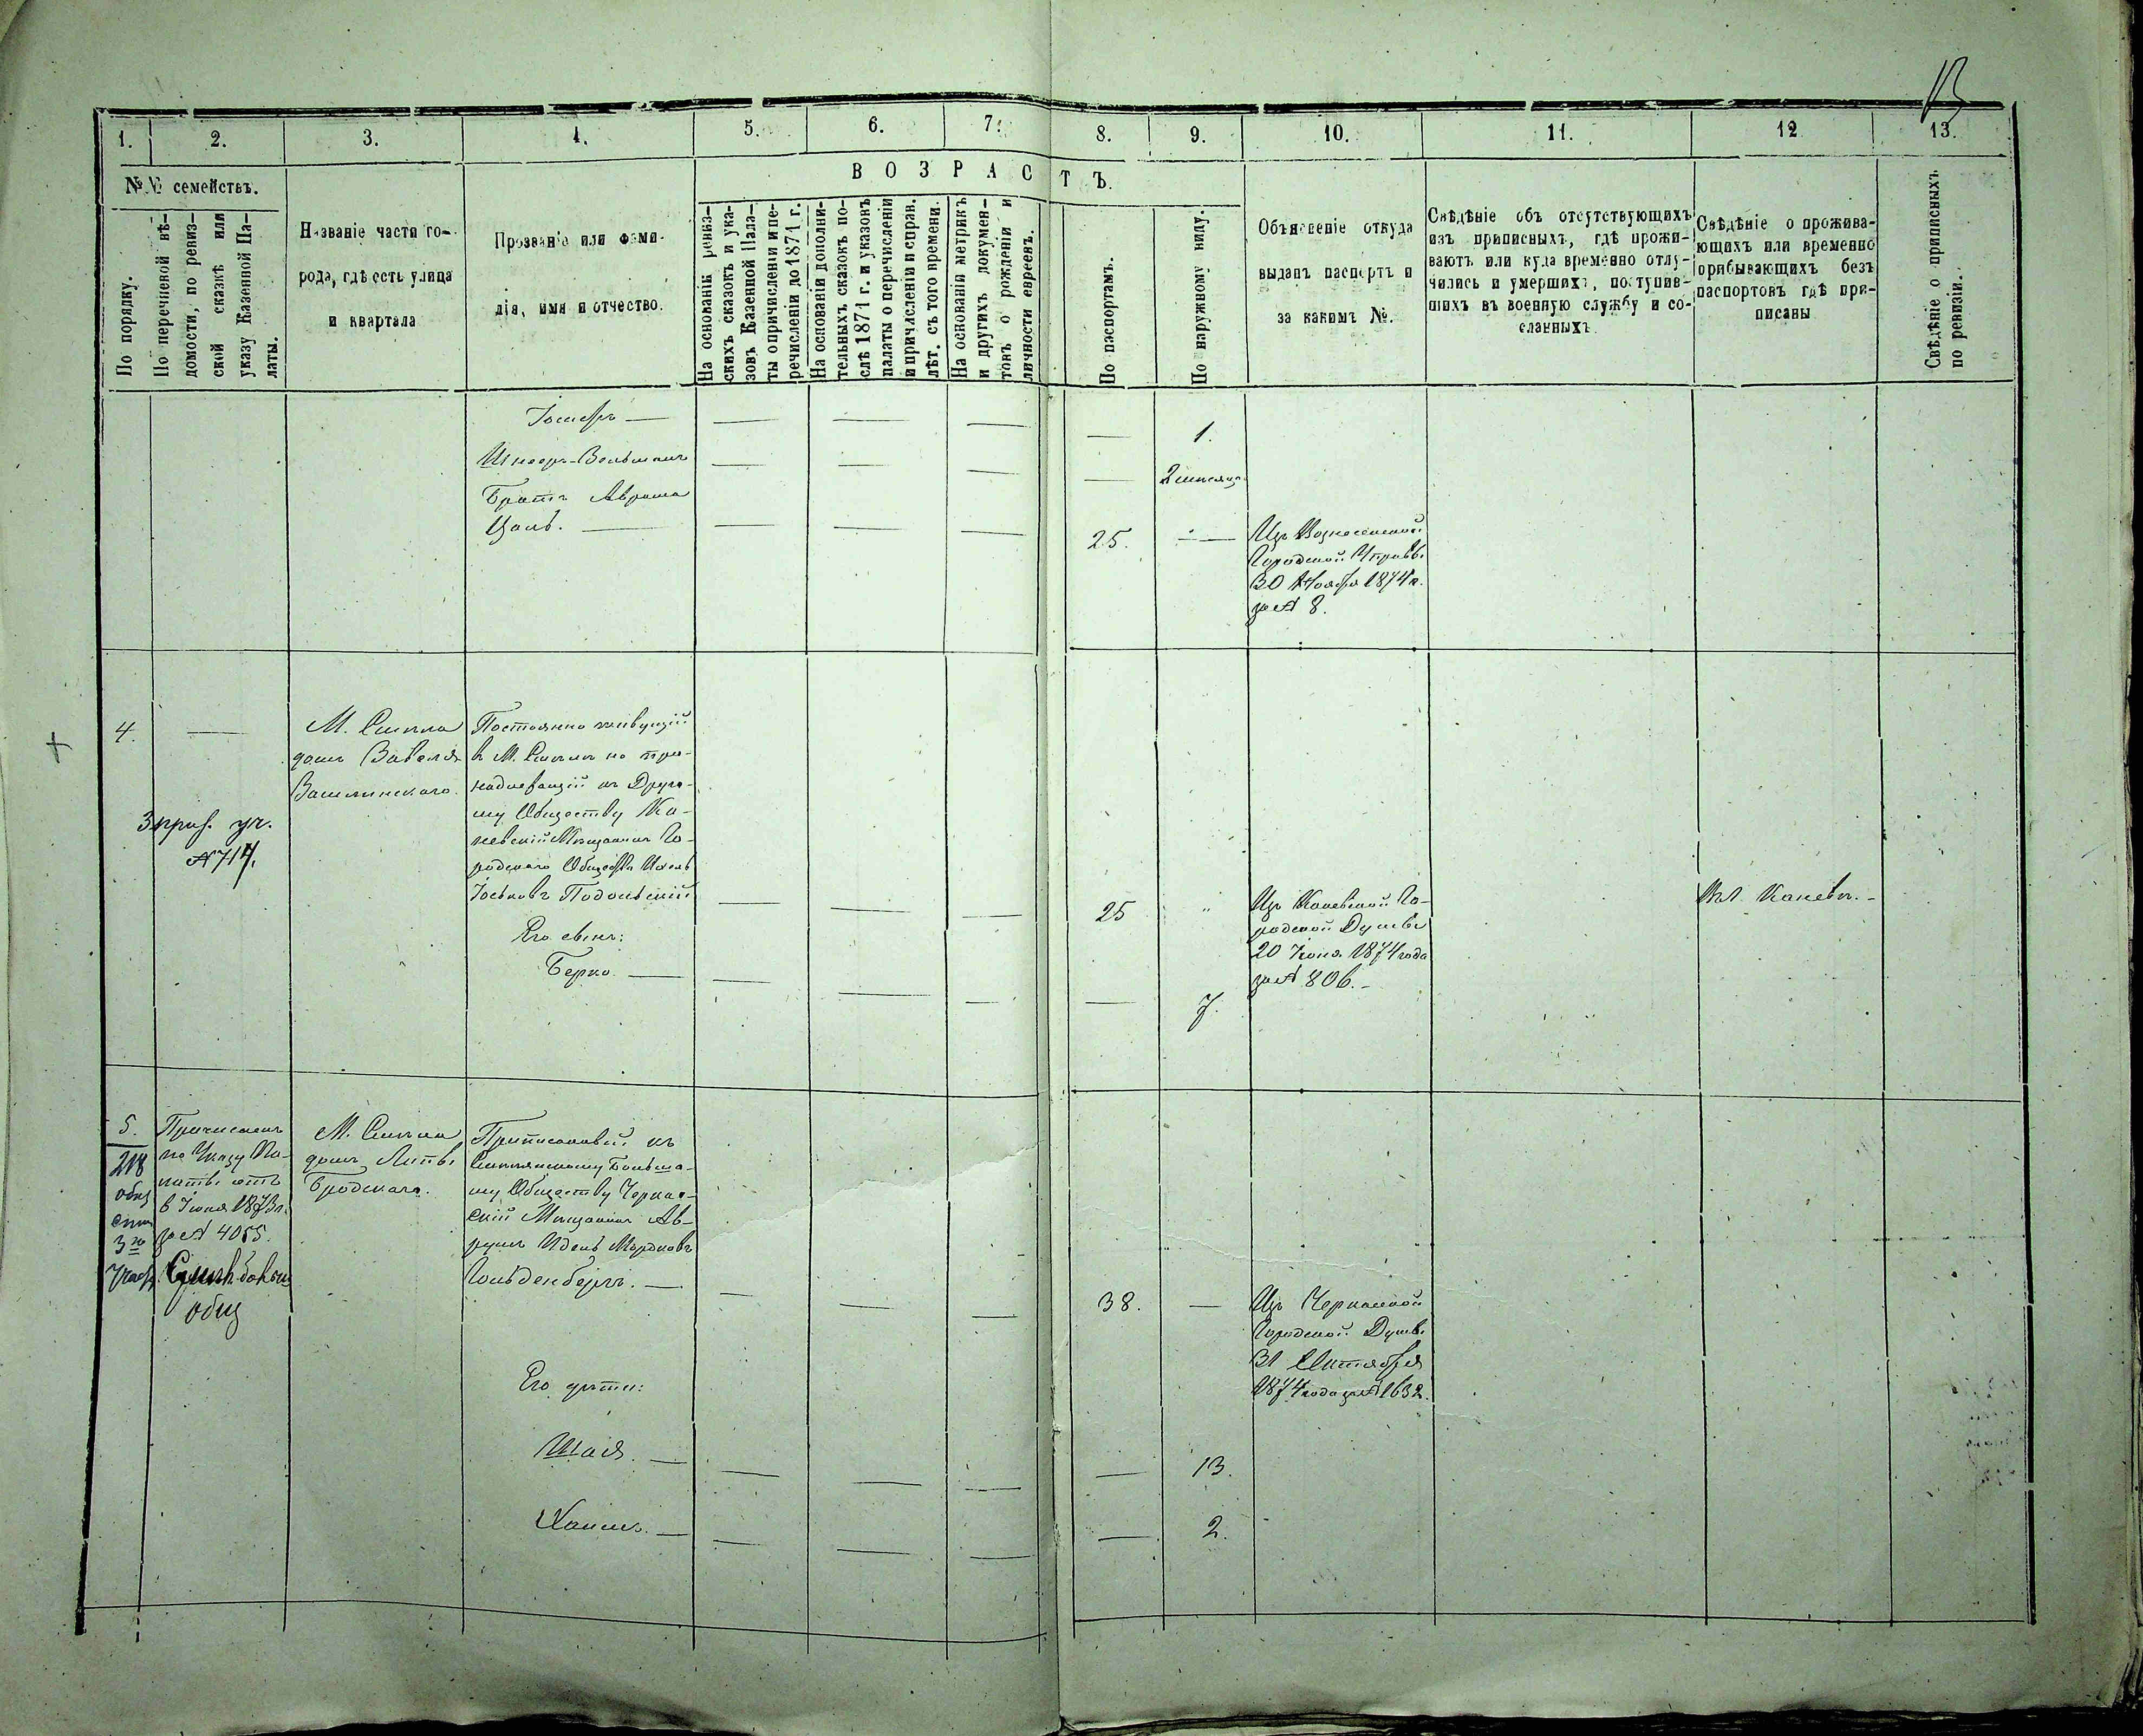 13
1. 2. 3. 4. 5. 6. 7. 8. 9. 10. 11. 12 13.
№№ семействъ.
По порядку.
По перечневой вѣ-
домости, по ревиз-
ской сказкѣ или
указу Казенной Па-
латы.
Названіе части го-
рода, гдѣ есть улица
и квартала
Прозваніе или фами-
лія, имя и отчество.
ВОЗРАСТЪ.
На основаніи ревиз-
скихъ сказокъ и ука-
зовъ Казенной Пала-
ты о причисленіи и пе-
речисленіи до 1871 г.
На основаніи дополни-
тельныхъ сказокъ по-
слѣ 1871 г. и указовъ
палаты о перечисленіи
и причисленіи и справ.
лѣт. съ того времени.
На основаніи метрикъ
и другихъ докумен-
товъ о рожденіи и
личности евреевъ.
По паспортамъ.
По наружному виду.
Объясненіе откуда
выданъ паспортъ и
за какимъ №.
Свѣдѣніе объ отсутствующихъ
изъ приписныхъ, гдѣ прожи-
ваютъ или куда временно отлу-
чились и умершихъ, поступив-
шихъ въ военную службу и со-
сланныхъ
Свѣдѣніе о прожива-
ющихъ или временно
прибывающихъ безъ
паспортовъ гдѣ при-
писаны
Свѣдѣніе о приписныхъ
по ревизіи.
Іосифъ — 1.
Шнееръ-Вольманъ 2 мѣсяца
Братъ Аврама
Цаль. — 25.
Изъ Вознесенской
Городской Управы
30 Ноября 1874 г.
за № 8.
4.
3 приз. уч.
№ 714.
М. Смѣла
домъ Вавеля
Заславскаго.
Постоянно живущій
в М. Смѣлѣ но при-
надлежащій къ Друго-
му Обществу Ка-
невскій Мѣщанинъ Го-
родскаго Общества
Іоськовъ Подольскій
25 "
Изъ Каневской Го-
родской Думы
20 Іюня 1874 года
за № 806.-
М. Каневъ.-
Его сынъ:
Берко. — 7.
5.
218
общ
спис
3го
Участ.
Причисленъ
по Указу Па-
латы отъ
6 Іюня 1873 г.
за № 4055.
общ
М. Смѣла
домъ Липы
Бродскаго.
Приписанный къ
Смѣлянскому Больша-
му Обществу Черкас-
скій Мѣщанинъ Ав-
румъ Идель Мордковъ
Гольденбергъ. —
38. —
Изъ Черкасской
Городской Думы
31 Октября
1874 года за № 1632.
Его дѣти:
Шая. — 13.
Хаимъ. — 2.